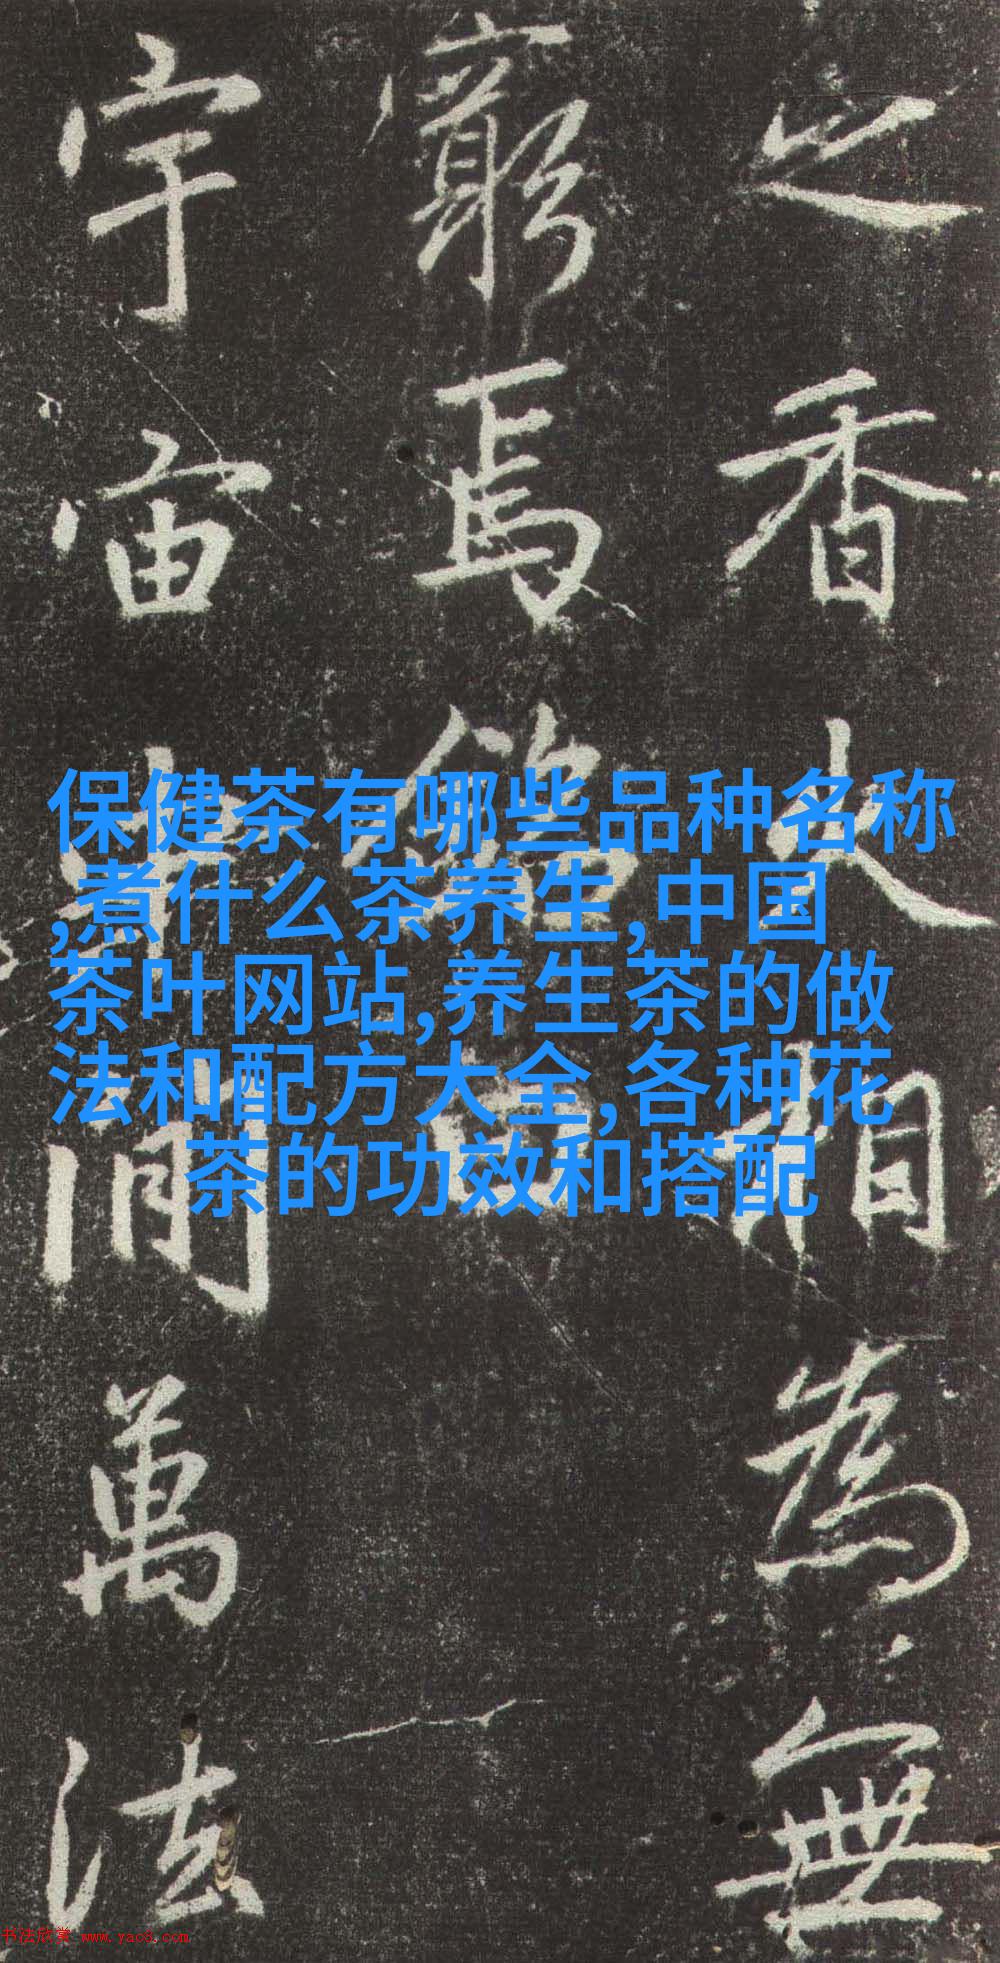 之香火相為無
窮焉銘曰
宇宙間萬法
保健茶有哪些品种名称
,煮什么茶养生,中国
茶叶网站,养生茶的做
法和配方大全,各种花
茶的功效和搭配
书法欣赏 www.yac8.com